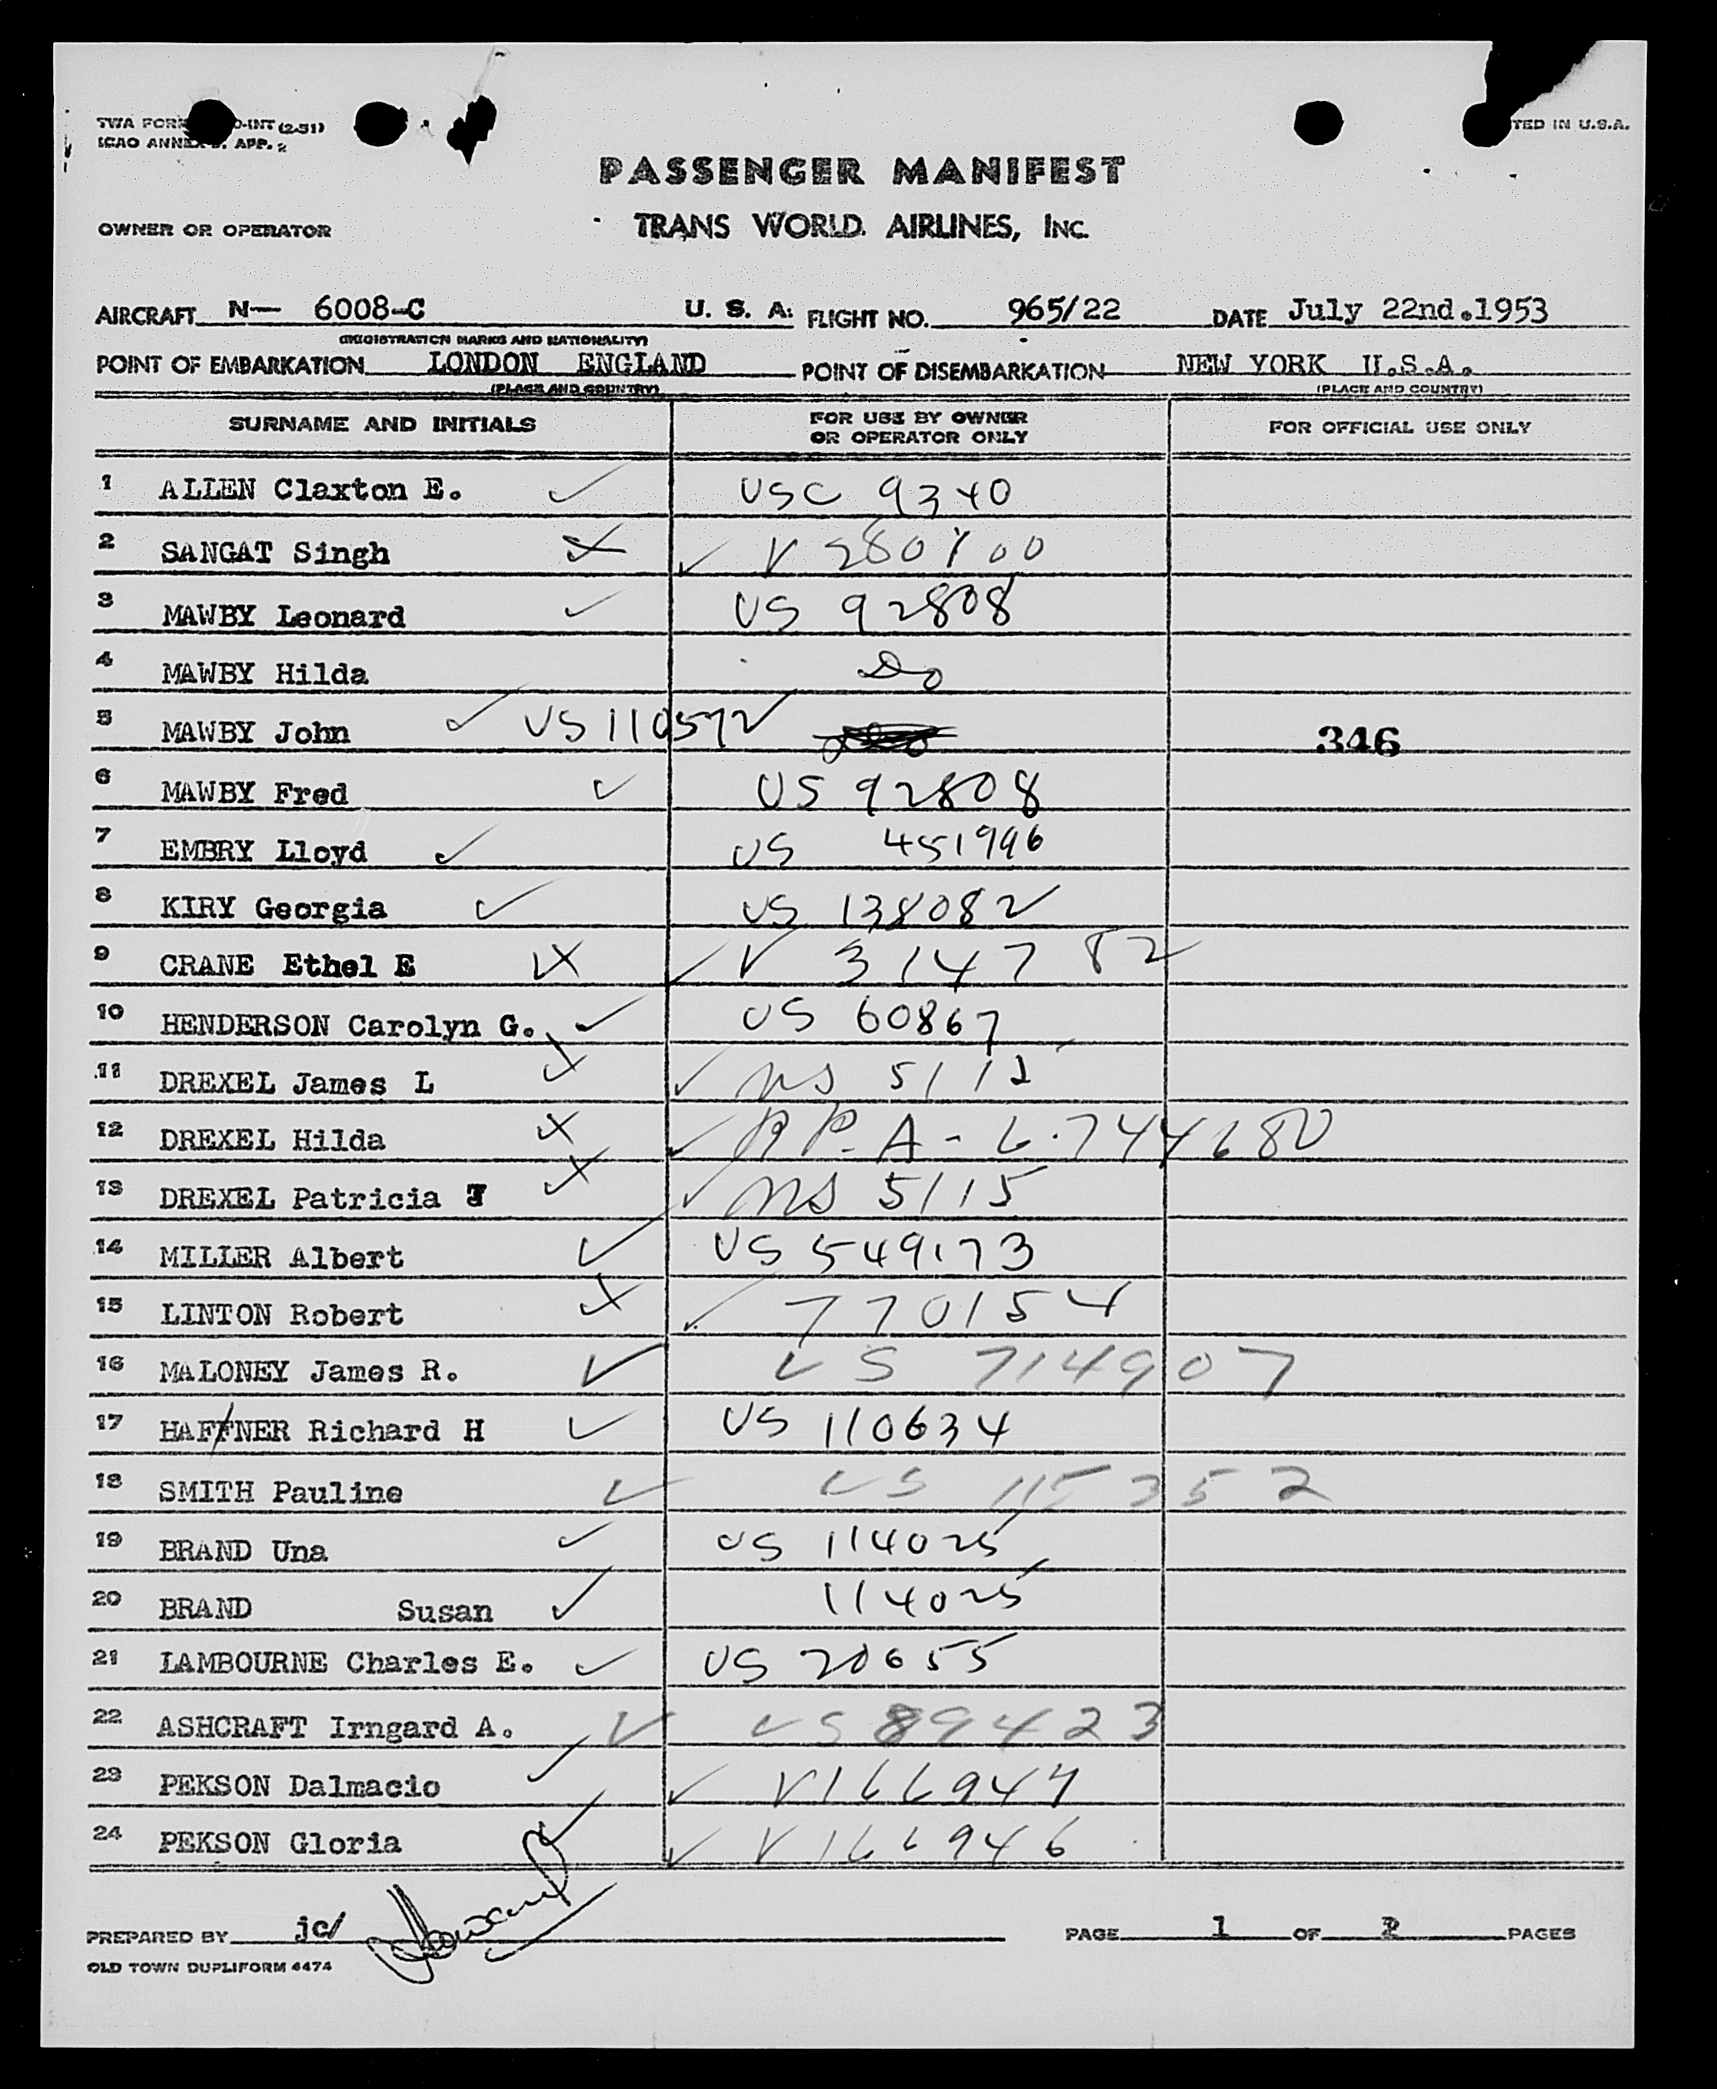 TWA FORM O-INT (2-51)
ICAO ANNEX 9. APP. 2
TED IN U.S.A.
PASSENGER MANIFEST
OWNER OR OPERATOR TRANS WORLD AIRLINES, INC.
AIRCRAFT N— 6008-C U. S. A. FLIGHT NO. 965/22 DATE July 22nd.1953
(REGISTRATION MARKS AND NATIONALITY)
POINT OF EMBARKATION LONDON ENGLAND POINT OF DISEMBARKATION NEW YORK U.S.A.
(PLACE AND COUNTRY) (PLACE AND COUNTRY)
SURNAME AND INITIALS FOR USE BY OWNER OR OPERATOR ONLY FOR OFFICIAL USE ONLY
1 ALLEN Claxton E. USC 9340
2 SANGAT Singh V 280100
3 MAWBY Leonard US 92808
4 MAWBY Hilda Do
5 MAWBY John US 110572 346
6 MAWBY Fred US 92808
7 EMBRY Lloyd US 451996
8 KIRY Georgia US 138082
9 CRANE Ethel E V 314782
10 HENDERSON Carolyn G. US 60867
11 DREXEL James L NS 5112
12 DREXEL Hilda A-6.744680
13 DREXEL Patricia J NS 5115
14 MILLER Albert US 549173
15 LINTON Robert 770154
16 MALONEY James R. US 714907
17 HAFFNER Richard H US 110634
18 SMITH Pauline US 115352
19 BRAND Una US 114025
20 BRAND Susan 114025
21 LAMBOURNE Charles E. US 20655
22 ASHCRAFT Irngard A. US 89423
23 PEKSON Dalmacio V166947
24 PEKSON Gloria V166946
PREPARED BY jc/ PAGE 1 OF 2 PAGES
OLD TOWN DUPLIFORM 4474